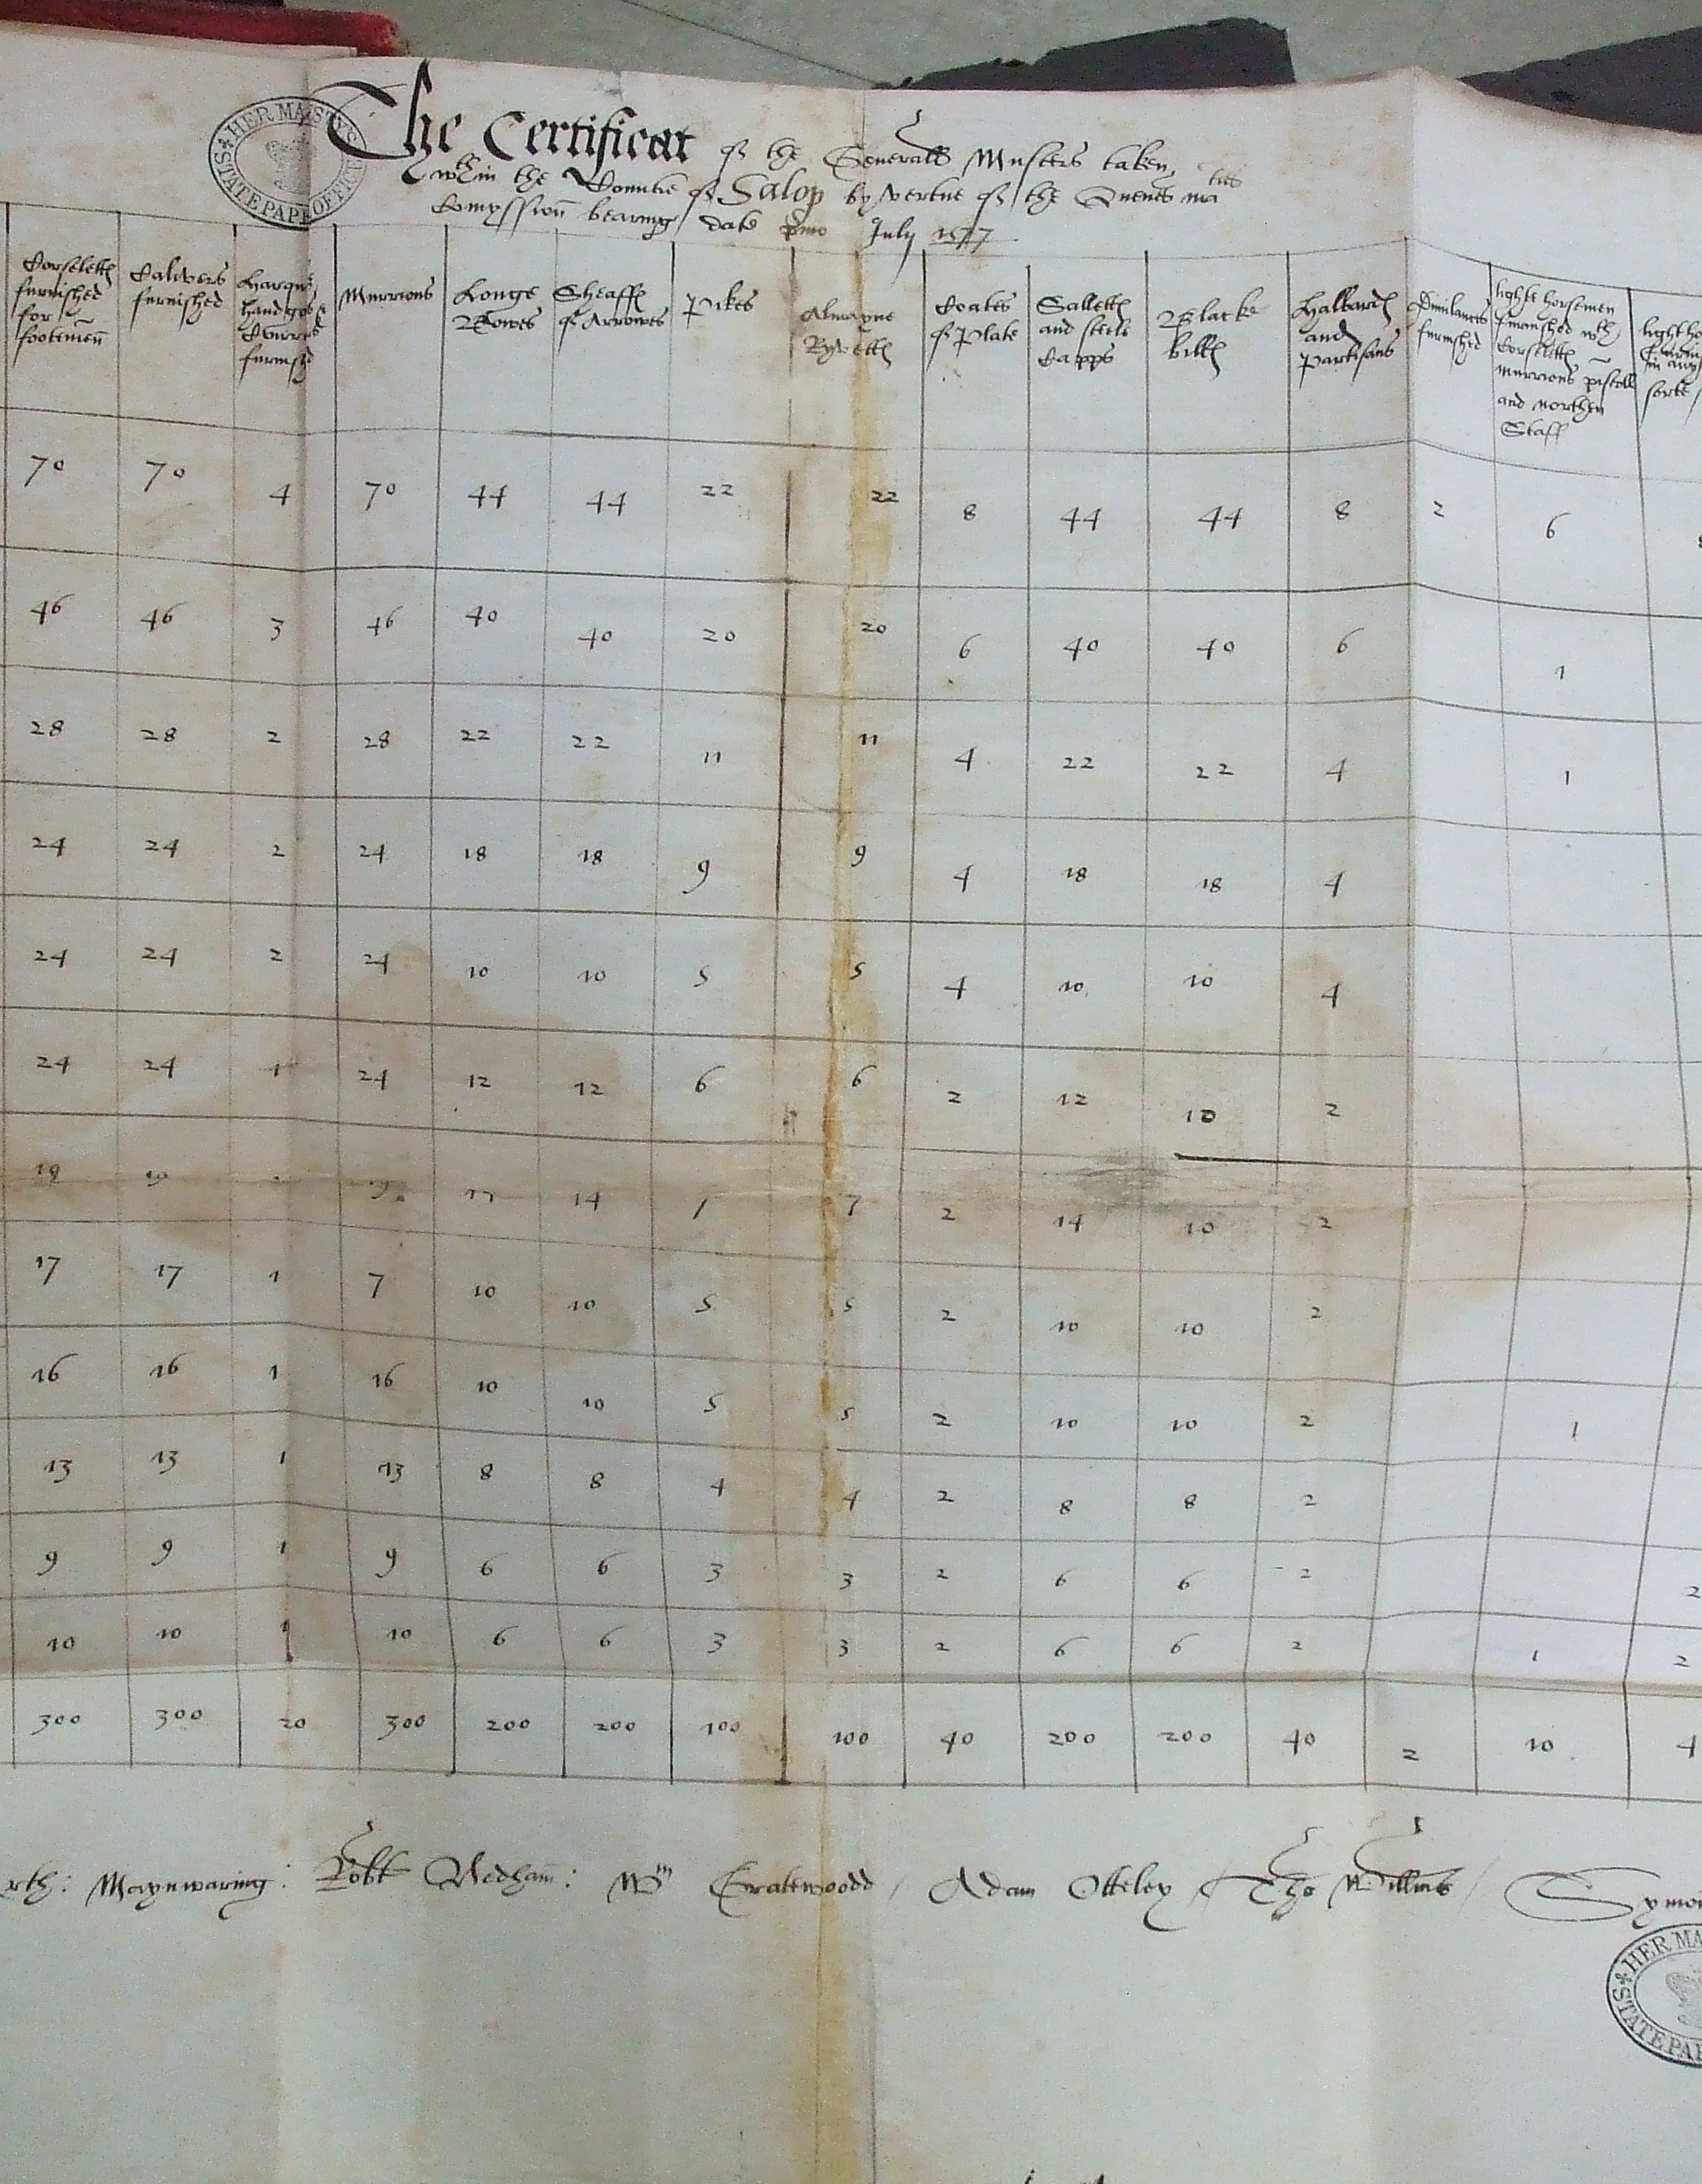 The Certificat of the Generall Musters taken
wthin the Countie of Salop by vertue of the Quenes maties
Comyssion bearing date pmo July 1577
HER MAISTYS STATE PAPER OFFICE
Corselett furnished for footemen | Calivers furnished | Murrions | Longe Bowes | Sheaff of Arrowes | Pikes | Almayne Ryvett | Coates of Plate | Sallett and steele Capps | Blacke bill | Halbard and Partisans | Dimilances furnished | light horsemen furnished wth Corselett murrions pistoll and northen Staff
70 70 4 70 44 44 22 22 8 44 44 8 2 6
46 46 3 46 40 40 20 20 6 40 40 6 1
28 28 2 28 22 22 11 11 4 22 22 4 1
24 24 2 24 18 18 9 9 4 18 18 4
24 24 2 24 10 10 5 5 4 10 10 4
24 24 1 24 12 12 6 6 2 12 10 2
19 19 14 7 2 14 10 2
17 17 1 7 10 10 5 5 2 10 10 2
16 16 1 16 10 10 5 5 2 10 10 2 1
13 13 1 13 8 8 4 4 2 8 8 2
9 9 1 9 6 6 3 3 2 6 6 2 2
10 10 1 10 6 6 3 3 2 6 6 2 1 2
300 300 20 300 200 200 100 100 40 200 200 40 2 10 4
rth: Maynwaring: Robt Nedham: Wm Gratewoodd / Adam Otteley / Tho Willms / Symon
HER MA STATE PAP